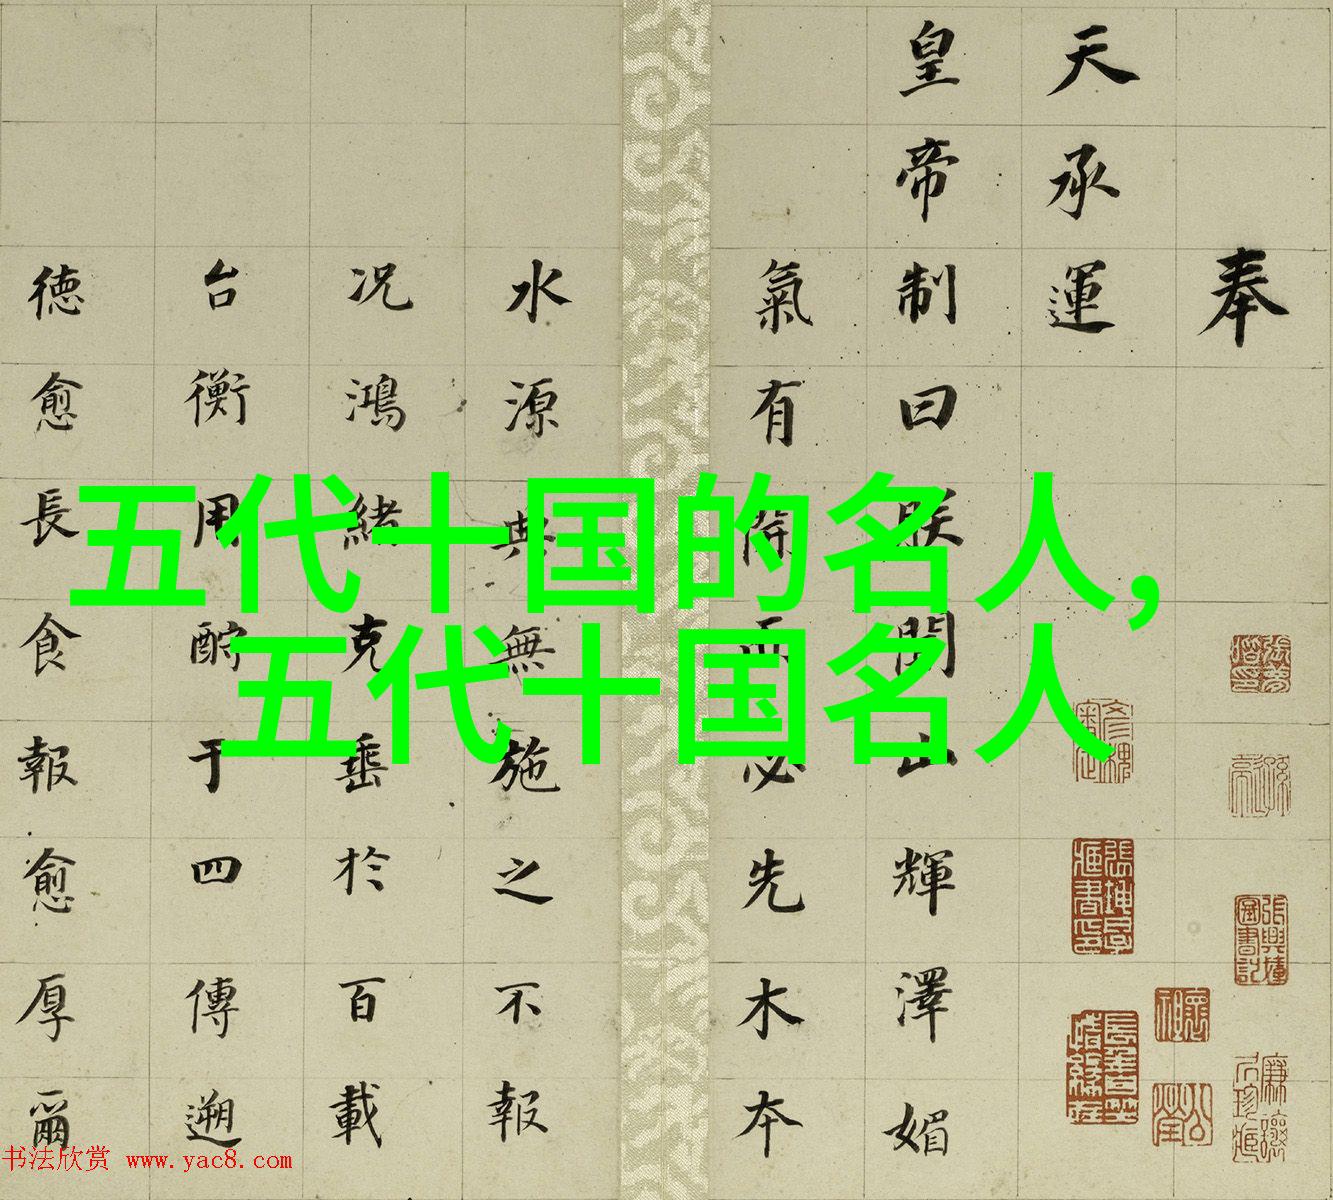 奉
天承運
皇帝制曰朕聞山輝澤媚
氣有除而必先木本
水源典無施之不報
况鴻緒克垂於百載
台衡用酧于四傳遡
德愈長食報愈厚爾
五代十国的名人,
五代十国名人
书法欣赏 www.yac8.com